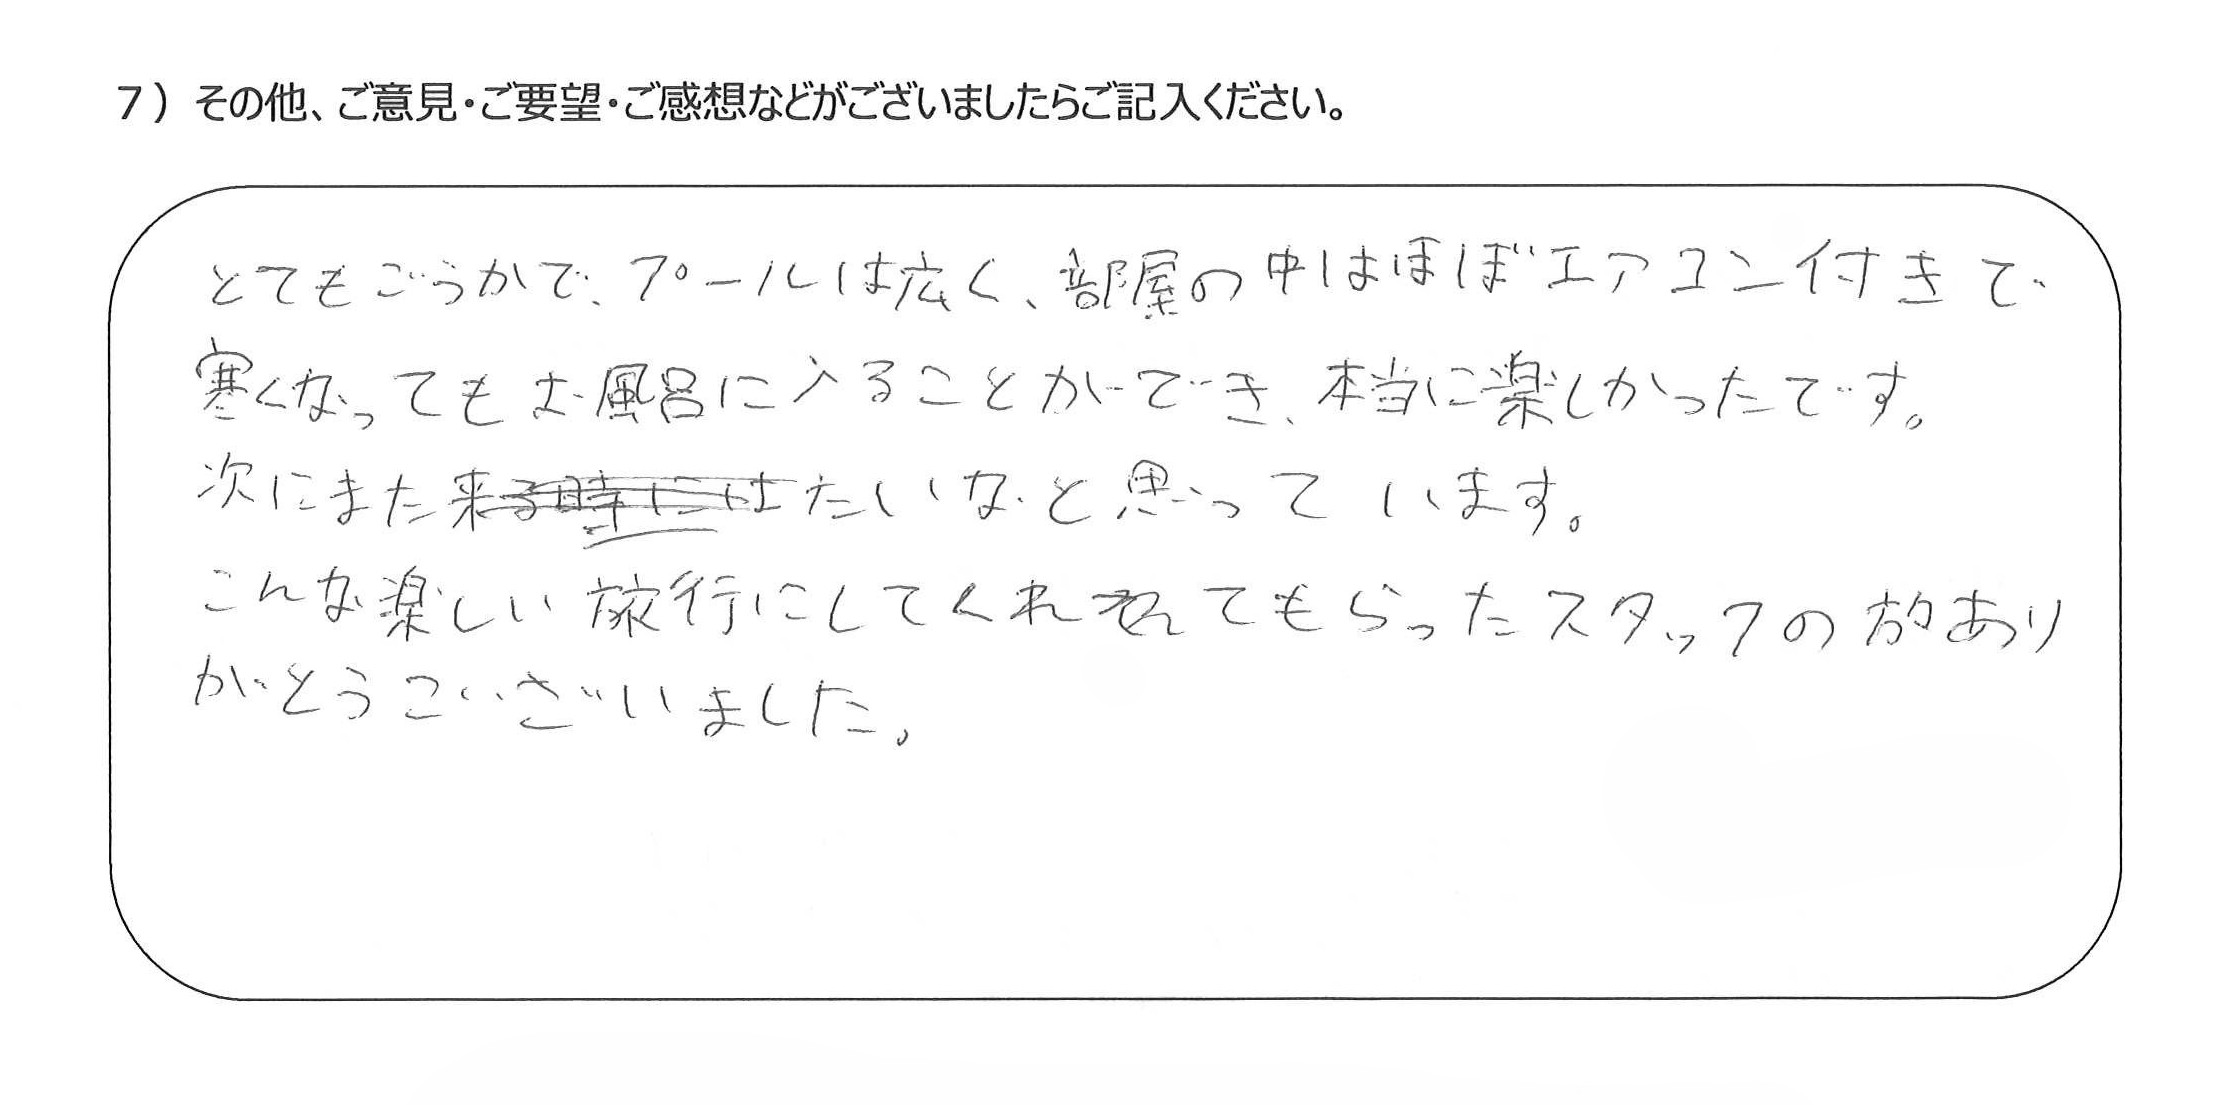 7）その他、ご意見・ご要望・ご感想などがございましたらご記入ください。
とてもごうかで、プールは広く、部屋の中はほぼエアコン付きで
寒くなってもお風呂に入ることができ、本当に楽しかったです。
次にまた来たいなと思っています。
こんな楽しい旅行にしてくれてもらったスタッフの方あり
がとうございました。